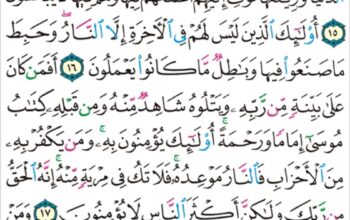 ١٥ أُوْلَٰٓئِكَ ٱلَّذِينَ لَيْسَ لَهُمْ فِي ٱلْأٓخِرَةِ إِلَّا ٱلنَّارُ ۖ وَحَبِطَ
مَا صَنَعُوا۟ فِيهَا وَبَٰطِلٌ مَّا كَانُوا۟ يَعْمَلُونَ ١٦ أَفَمَن كَانَ
عَلَىٰ بَيِّنَةٍ مِّن رَّبِّهِۦ وَيَتْلُوهُ شَاهِدٌ مِّنْهُ وَمِن قَبْلِهِۦ كِتَٰبُ
مُوسَىٰٓ إِمَامًا وَرَحْمَةً ۚ أُوْلَٰٓئِكَ يُؤْمِنُونَ بِهِۦ ۚ وَمَن يَكْفُرْ بِهِۦ
مِنَ ٱلْأَحْزَابِ فَٱلنَّارُ مَوْعِدُهُۥ ۚ فَلَا تَكُ فِي مِرْيَةٍ مِّنْهُ ۚ إِنَّهُ ٱلْحَقُّ
مِن رَّبِّكَ وَلَٰكِنَّ أَكْثَرَ ٱلنَّاسِ لَا يُؤْمِنُونَ ١٧ وَمَنْ